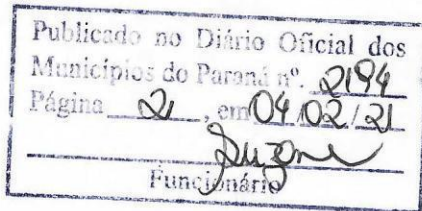 Publicado no Diário Oficial dos
Municípios do Paraná nº. 2194
Página 21, em 04/02/21
Suzane
Funcionário